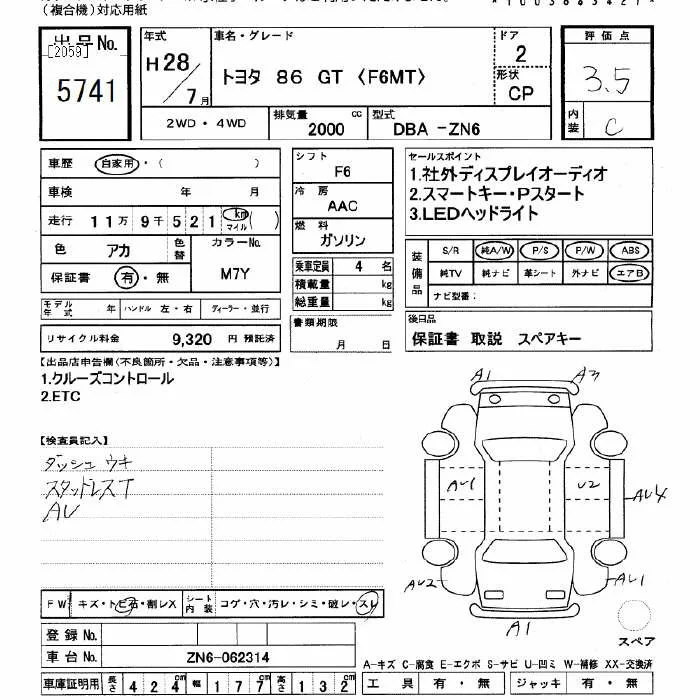 （複合機）対応用紙
出品No.
[2059]
5741
年式
H28/7月
車名・グレード
トヨタ 86 GT 〈F6MT〉
ドア
2
形状
CP
評価点
3.5
内装
C
2WD・4WD
排気量
2000 cc
型式
DBA -ZN6
車歴 自家用・（ ）
車検 年 月
走行 11万9千521 km マイル ( )
色 アカ 色替
カラーNo.
M7Y
保証書 有・無
モデル年式 年 ハンドル 左・右 ディーラー・並行
リサイクル料金 9,320 円 預託済
シフト
F6
冷房
AAC
燃料
ガソリン
乗車定員 4 名
積載量 kg
総重量 kg
書類期限
月 日
セールスポイント
1.社外ディスプレイオーディオ
2.スマートキー・Pスタート
3.LEDヘッドライト
装備品
S/R 純A/W P/S P/W ABS
純TV 純ナビ 革シート 外ナビ エアB
ナビ型番：
後日品
保証書 取説 スペアキー
【出品店申告欄(不良箇所・欠品・注意事項等)】
1.クルーズコントロール
2.ETC
【検査員記入】
ダッシュ ウキ
スタッドレスT
AU
A1 A3
AU1 U2 AU4
AU2 AU1
A1
スペア
FW キズ・トビ石・割レX シート内装 コゲ・穴・汚レ・シミ・破レ・スレ
登録No.
車台No. ZN6-062314
車庫証明用 長さ 424cm 幅 177cm 高さ 132cm
A-キズ C-腐食 E-エクボ S-サビ U-凹ミ W-補修 XX-交換済
工具 有・無 ジャッキ 有・無